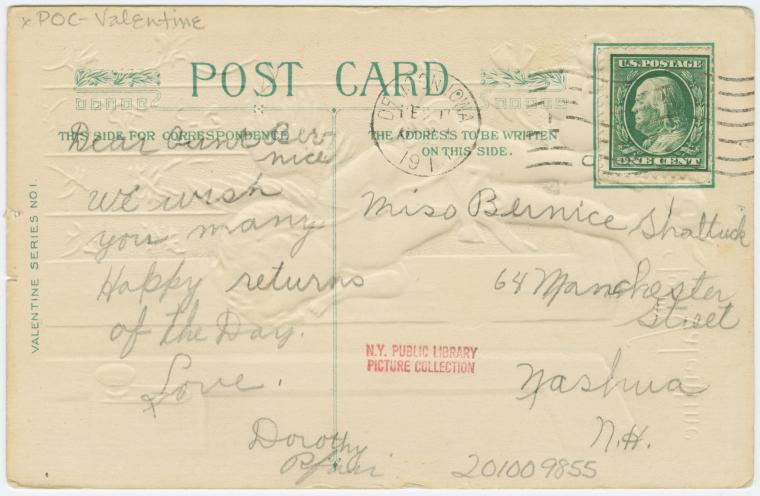 x POC- Valentine
POST CARD
U.S. POSTAGE
ONE CENT
IOWA
191
THIS SIDE FOR CORRESPONDENCE
THE ADDRESS TO BE WRITTEN
ON THIS SIDE.
Dear Aunt Ber-
nice
We wish
you many
Happy returns
of the Day.
Love.
Dorothy
Miss Bernice Shattuck
64 Manchester
Street
Nashua
N.H.
N.Y. PUBLIC LIBRARY
PICTURE COLLECTION
201009855
VALENTINE SERIES NO 1.